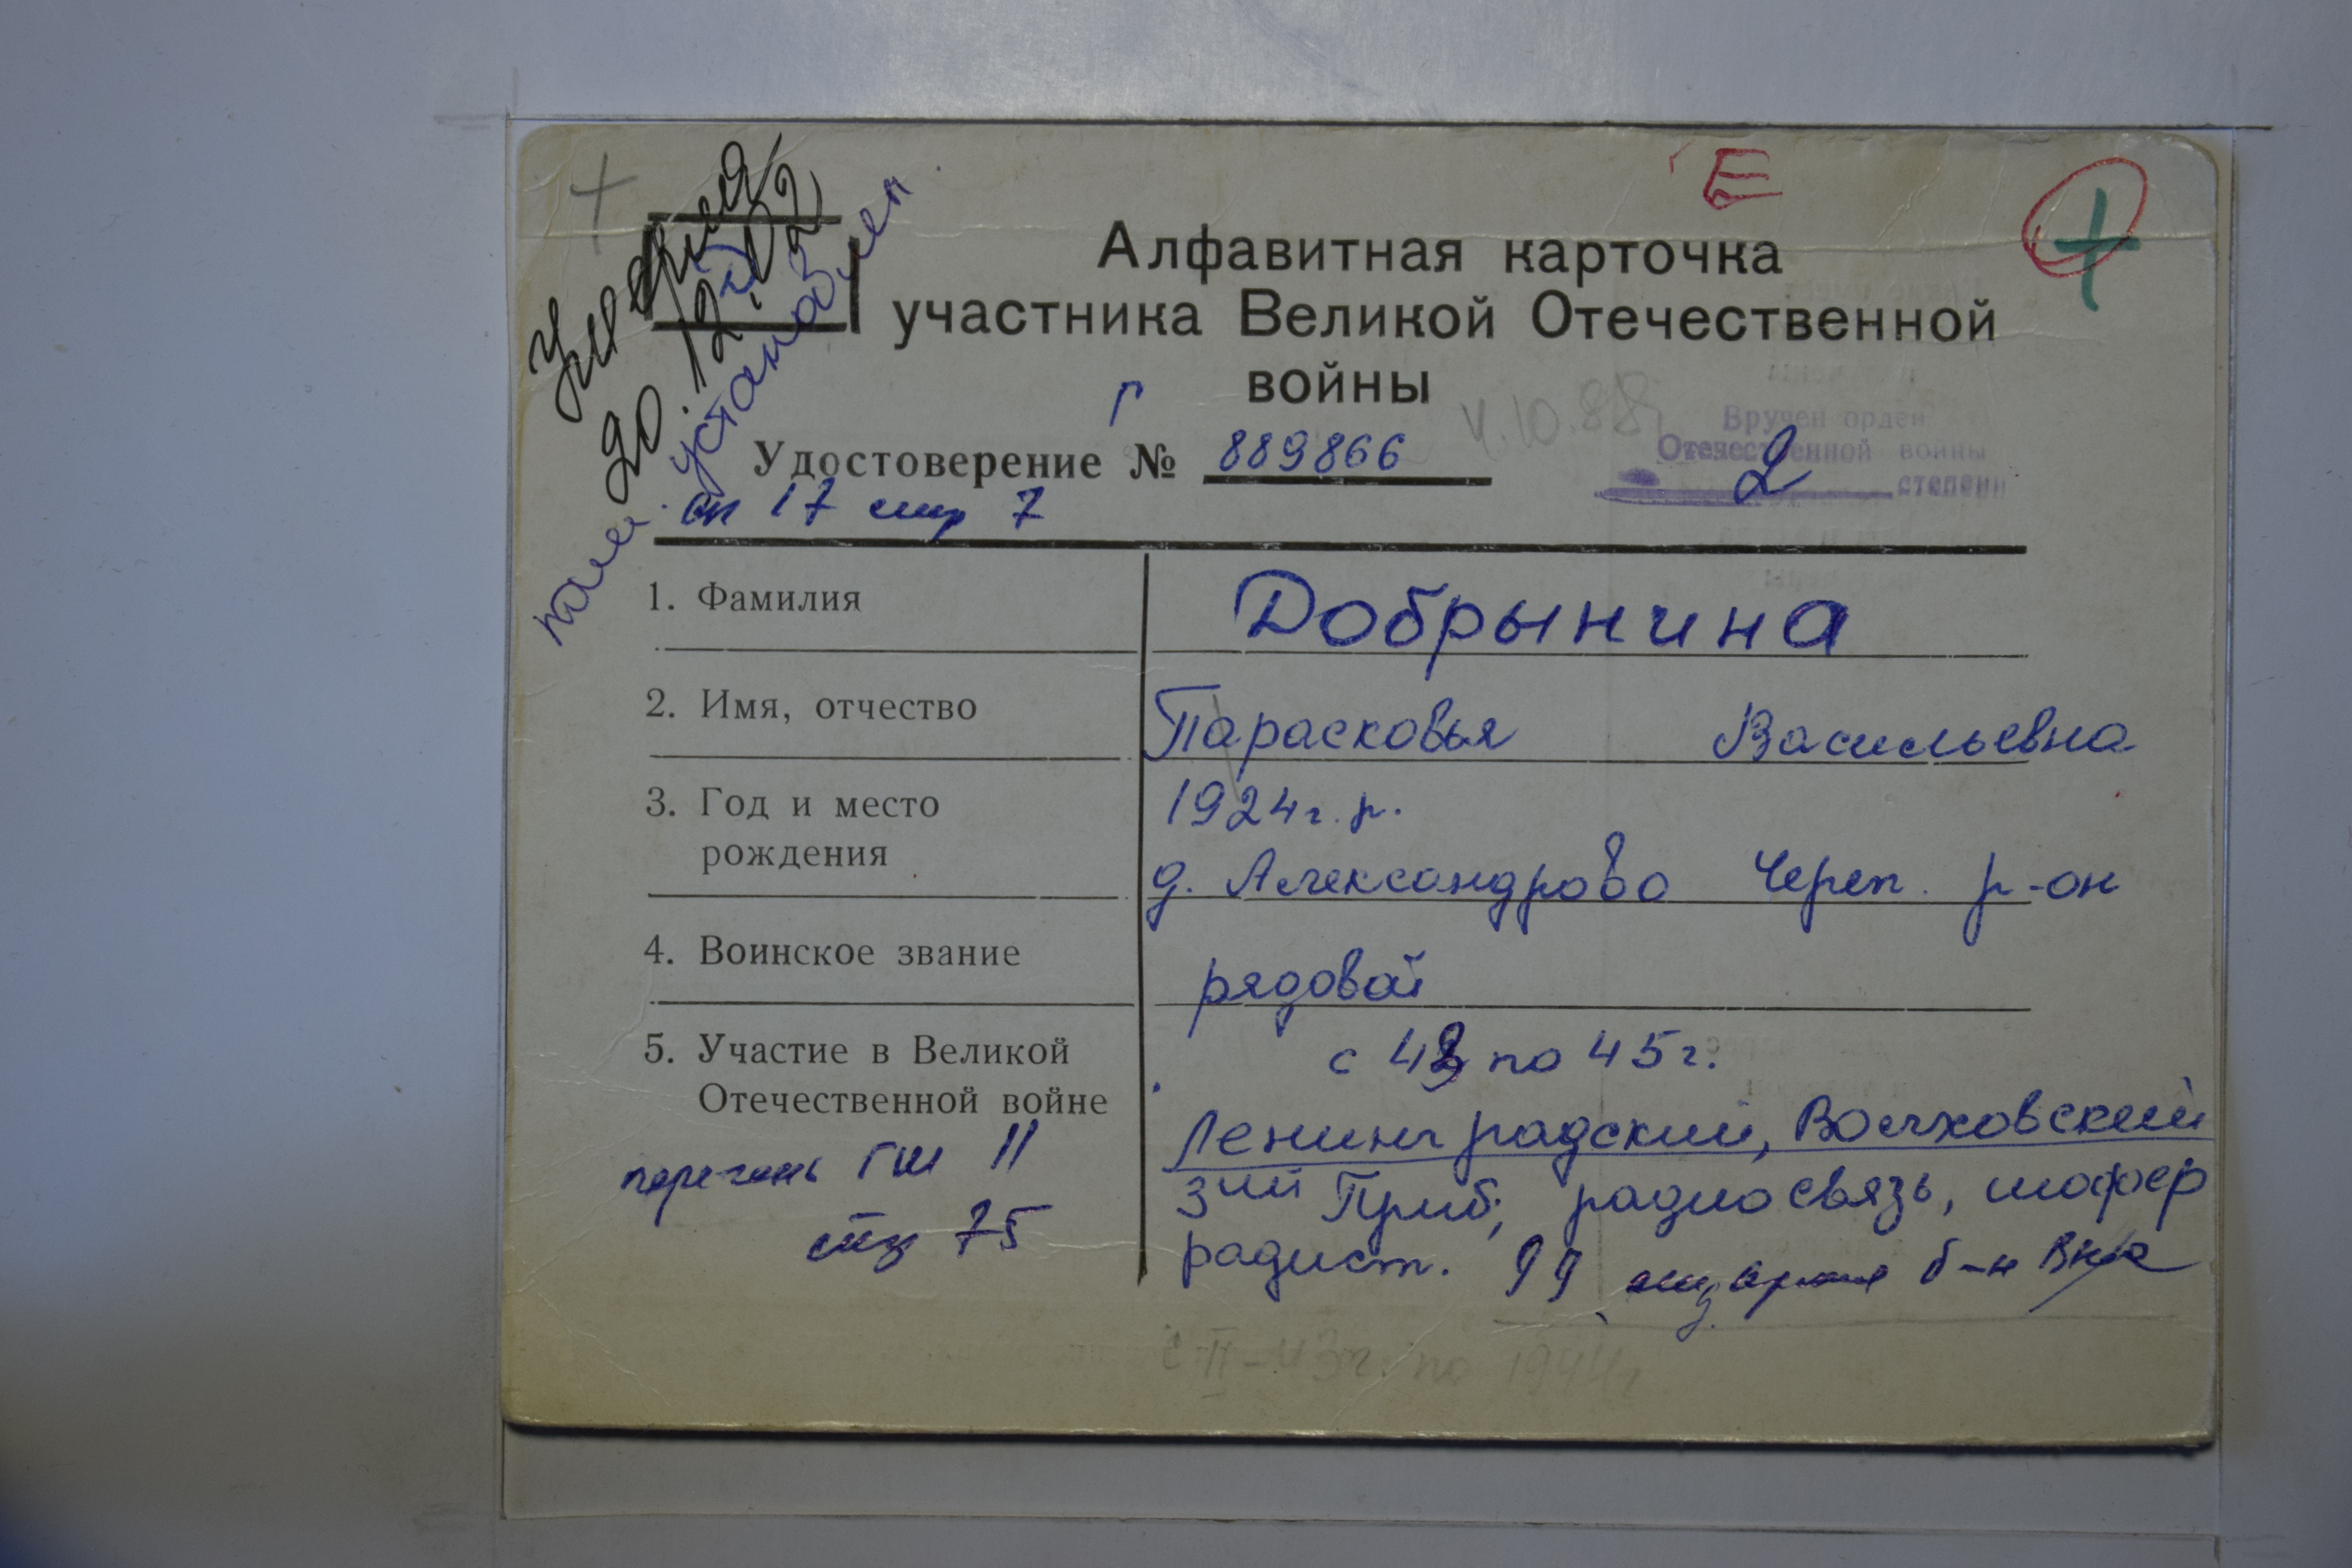 Е
+
+
Умерла
20.12.02
устоновлен
Алфавитная карточка
участника Великой Отечественной
войны
Г
Удостоверение № 889866
4.10.88
Вручен орден
Отечественной войны
2 степени
сп 17 стр 7
1. Фамилия
Добрынина
2. Имя, отчество
Парасковья Васильевна
3. Год и место
рождения
1924г.р.
д. Александрово Череп. р-он
4. Воинское звание
рядовой
5. Участие в Великой
Отечественной войне
с 43 по 45г.
Ленинградский, Волховский
3ий Приб, радиосвязь, шофер
радист. 99 б-н
перечень ГШ 11
стр 75
43г. по 1944г